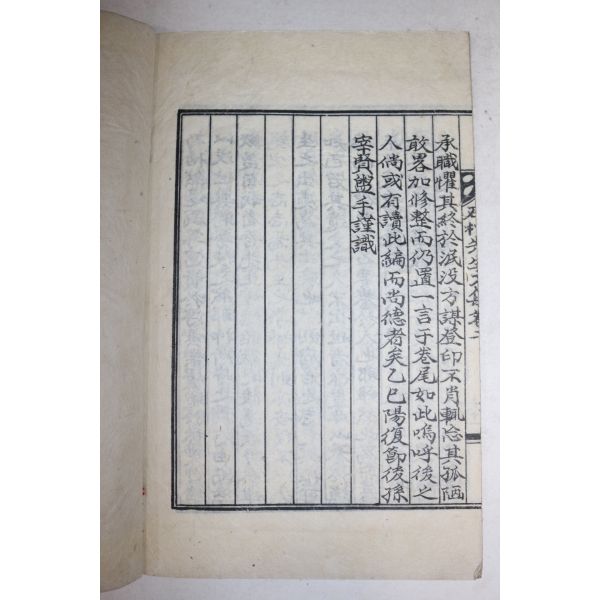 石村先生文集卷二
承職懼其終於泯没方謀登印不肖輒忘其孤陋
敢畧加修整而仍置一言于卷尾如此嗚呼後之
人倘或有讀此編而尚德者矣乙巳陽復節後孫
宰賢盥手謹識